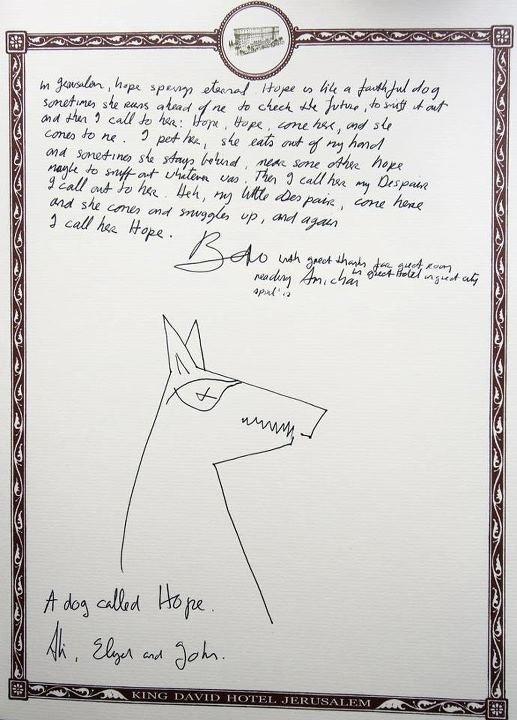 In Jerusalem, hope springs eternal. Hope is like a faithful dog
sometimes she runs ahead of me to check the future, to sniff it out
and then I call to her: Hope, Hope, come here, and she
comes to me. I pet her, she eats out of my hand
and sometimes she stays behind, near some other hope
maybe to sniff out whatever was. Then I call her my Despair
I call out to her. Heh, my little Despair, come here
and she comes and snuggles up, and again
I call her Hope.
Bono with great thanks for great room
reading Amichai in great Hotel in great city
A dog called Hope.
and John.
KING DAVID HOTEL JERUSALEM